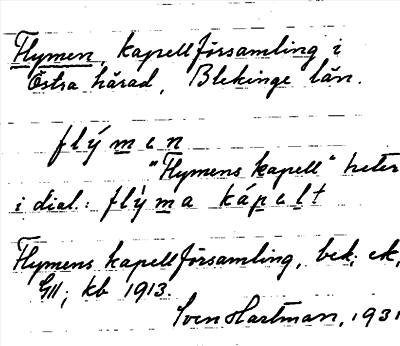 Flymen, kapellförsamling i
Östra härad, Blekinge län.
flýmen
"Flymens kapell" heter
i dial.: flỳma kápelt
Flymens kapellförsamling, bek; ek,
GII; kb 1913.
Sven Hartman, 1931